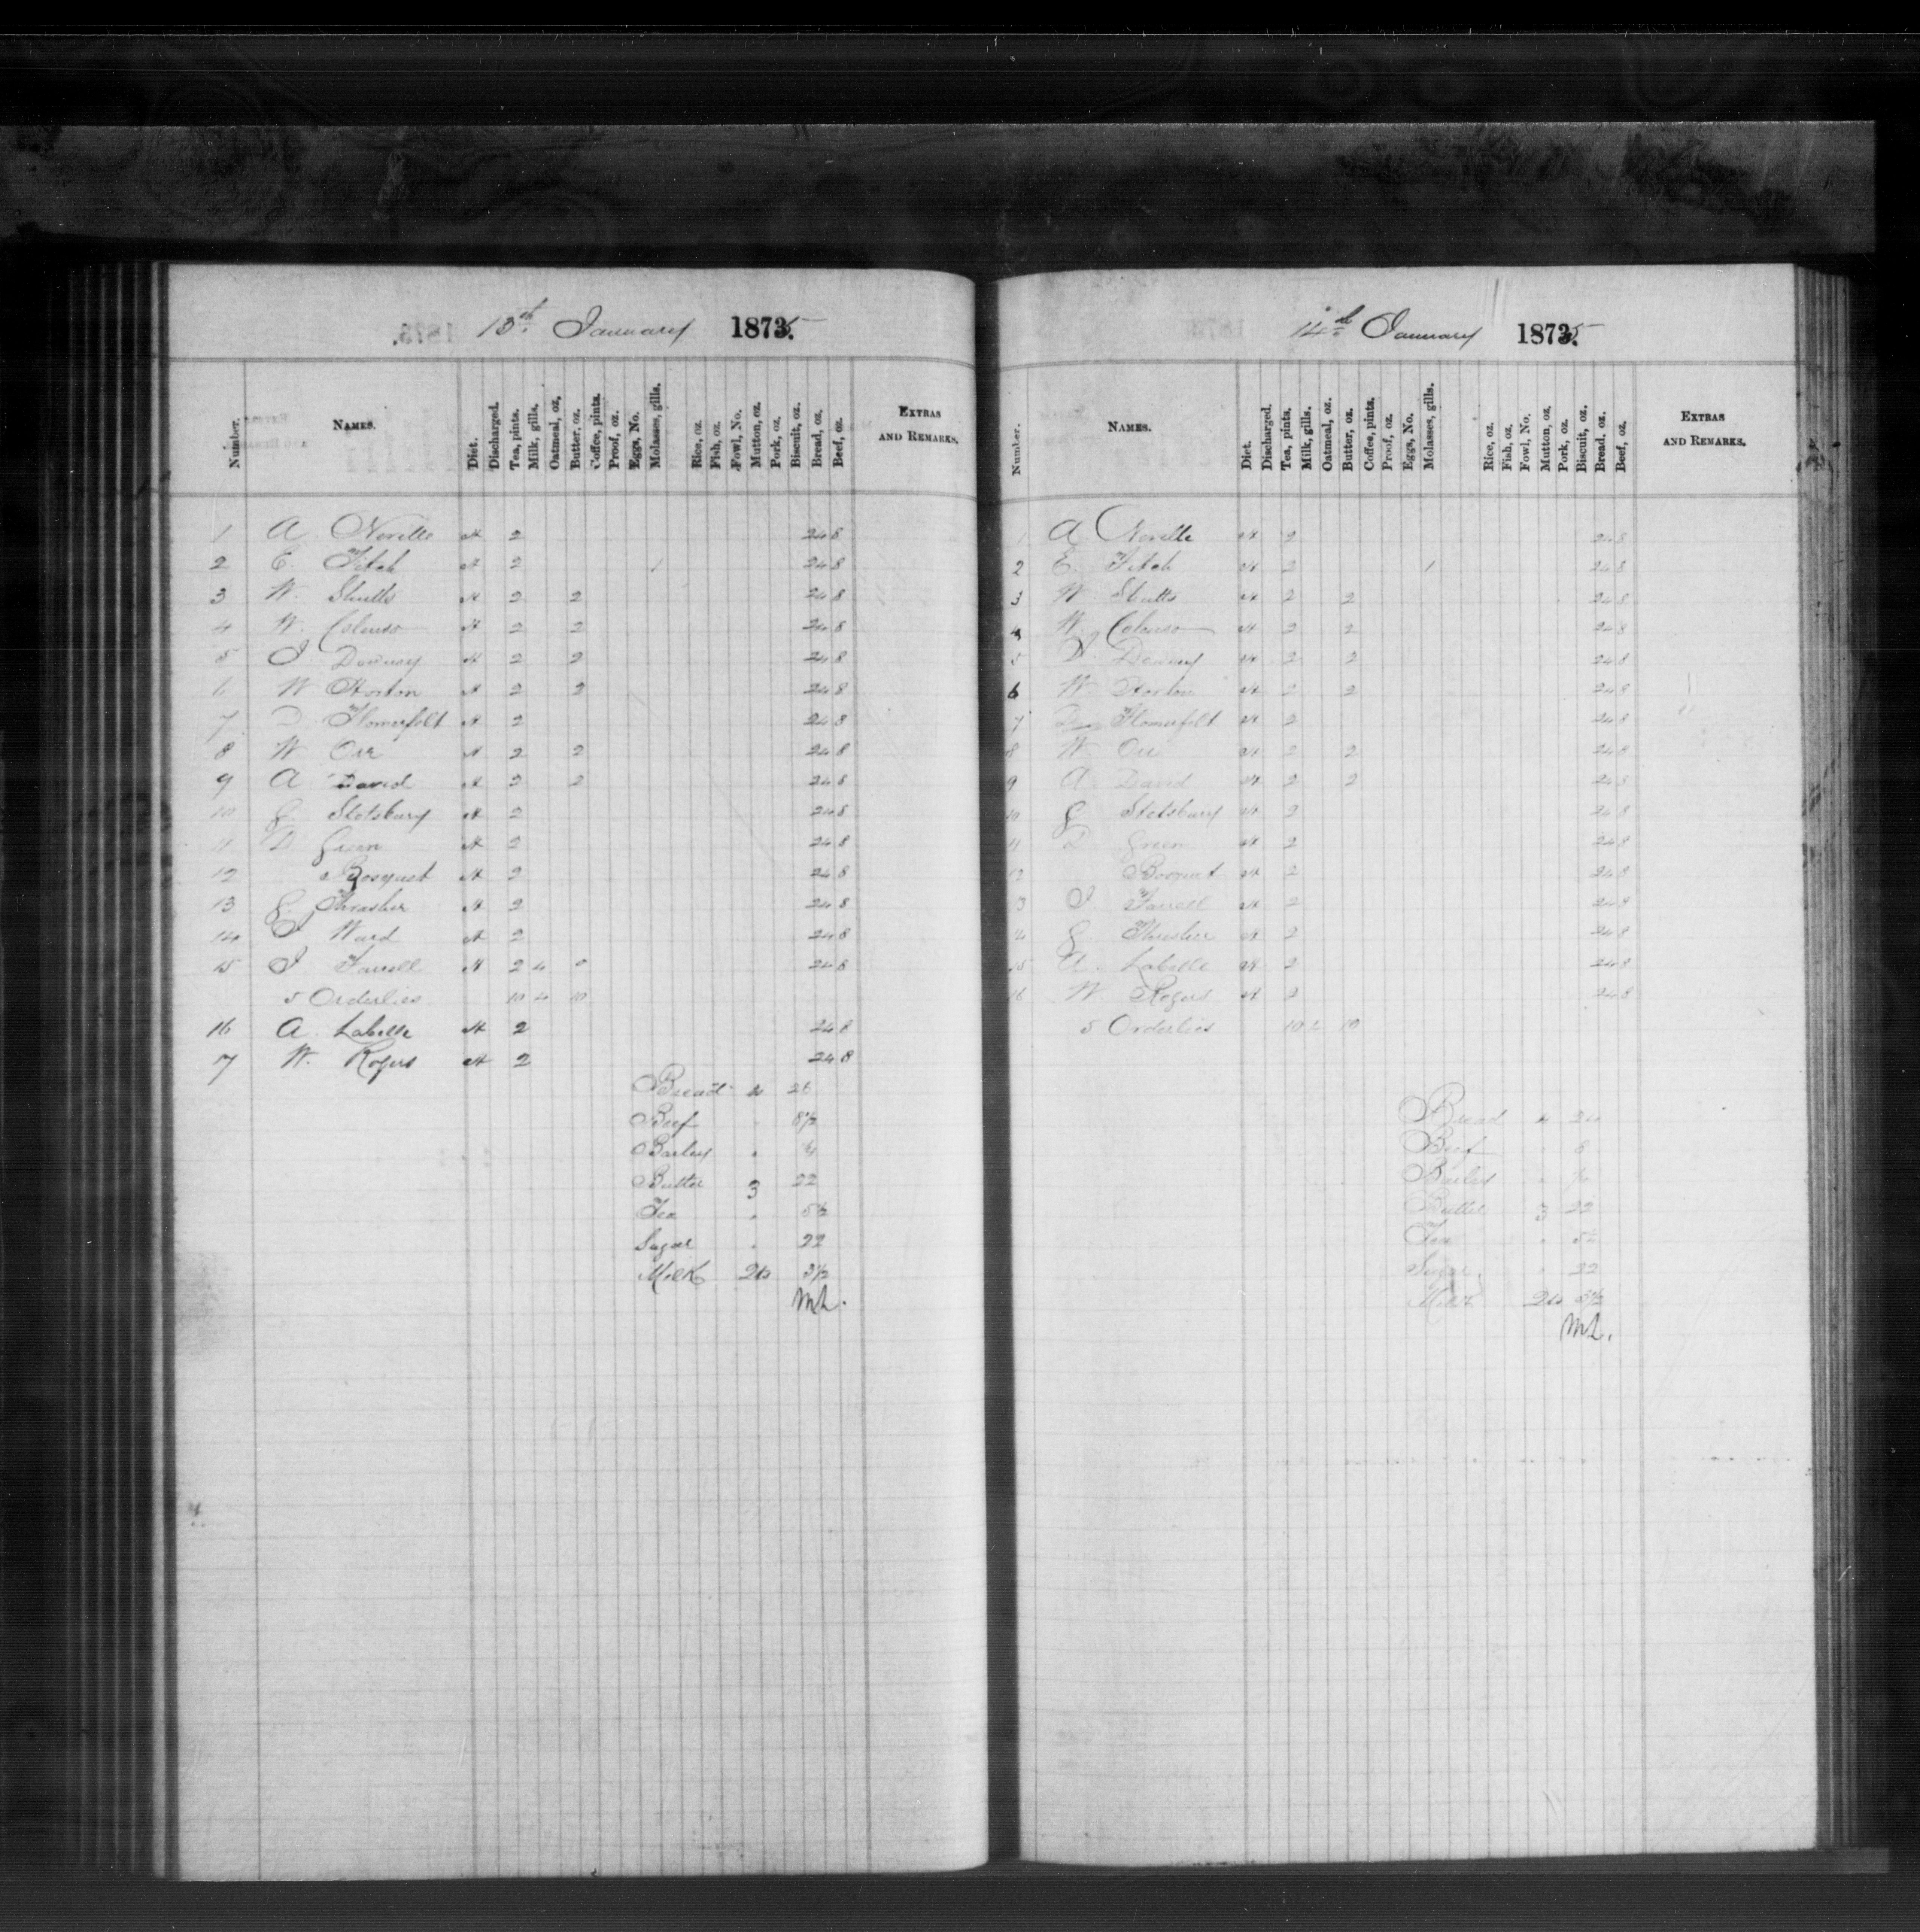 13th January 1875.
Number. NAMES. Diet. Discharged. Tea, pints. Milk, gills. Oatmeal, oz. Butter, oz. Coffee, pints. Proof, oz. Eggs, No. Molasses, gills. Rice, oz. Fish, oz. Fowl, No. Mutton, oz. Pork, oz. Biscuit, oz. Bread, oz. Beef, oz. EXTRAS AND REMARKS.
1 A Neville 2 24 8
2 E. Fitch 2 1 24 8
3 W. Shutts 2 2 24 8
4 W. Colenso 2 2 24 8
5 J Downey 2 2 24 8
6 W Horton 2 2 24 8
7 D. Homerfelt 2 24 8
8 W Orr 2 2 24 8
9 A David 2 2 24 8
10 G. Stotsbury 2 24 8
11 D Green 2 24 8
12 Bosquet 2 24 8
13 G. Thrasher 2 24 8
14 J Ward 2 24 8
15 J Farrell 2 4 24 8
5 Orderlies 10 10
16 A. Labelle 2 24 8
7 W. Rogers 2 24 8
Bread 26
Beef 8½
Barley
Butter 3 22
Tea 5½
Sugar 22
Milk 3½
14th January 1875.
Number. NAMES. Diet. Discharged. Tea, pints. Milk, gills. Oatmeal, oz. Butter, oz. Coffee, pints. Proof, oz. Eggs, No. Molasses, gills. Rice, oz. Fish, oz. Fowl, No. Mutton, oz. Pork, oz. Biscuit, oz. Bread, oz. Beef, oz. EXTRAS AND REMARKS.
1 A Neville 2 24 8
2 E. Fitch 2 1 24 8
3 W Shutts 2 2 24 8
4 W. Colenso 2 2 24 8
5 Downey 2 2 24 8
6 W Horton 2 2 24 8
7 D Homerfelt 2 24 8
8 W Orr 2 2 24 8
9 A David 2 2 24 8
10 G Stotsbury 2 24 8
11 D Green 2 24 8
12 Bosquet 2 24 8
3 J Farrell 2 24 8
14 G. Thrasher 2 24 8
15 A. Labelle 2 24 8
16 W. Rogers 2 24 8
5 Orderlies 10 10
Bread 24
Beef 8
Barley
Butter 3 22
Tea 5½
Sugar 22
Milk 3½